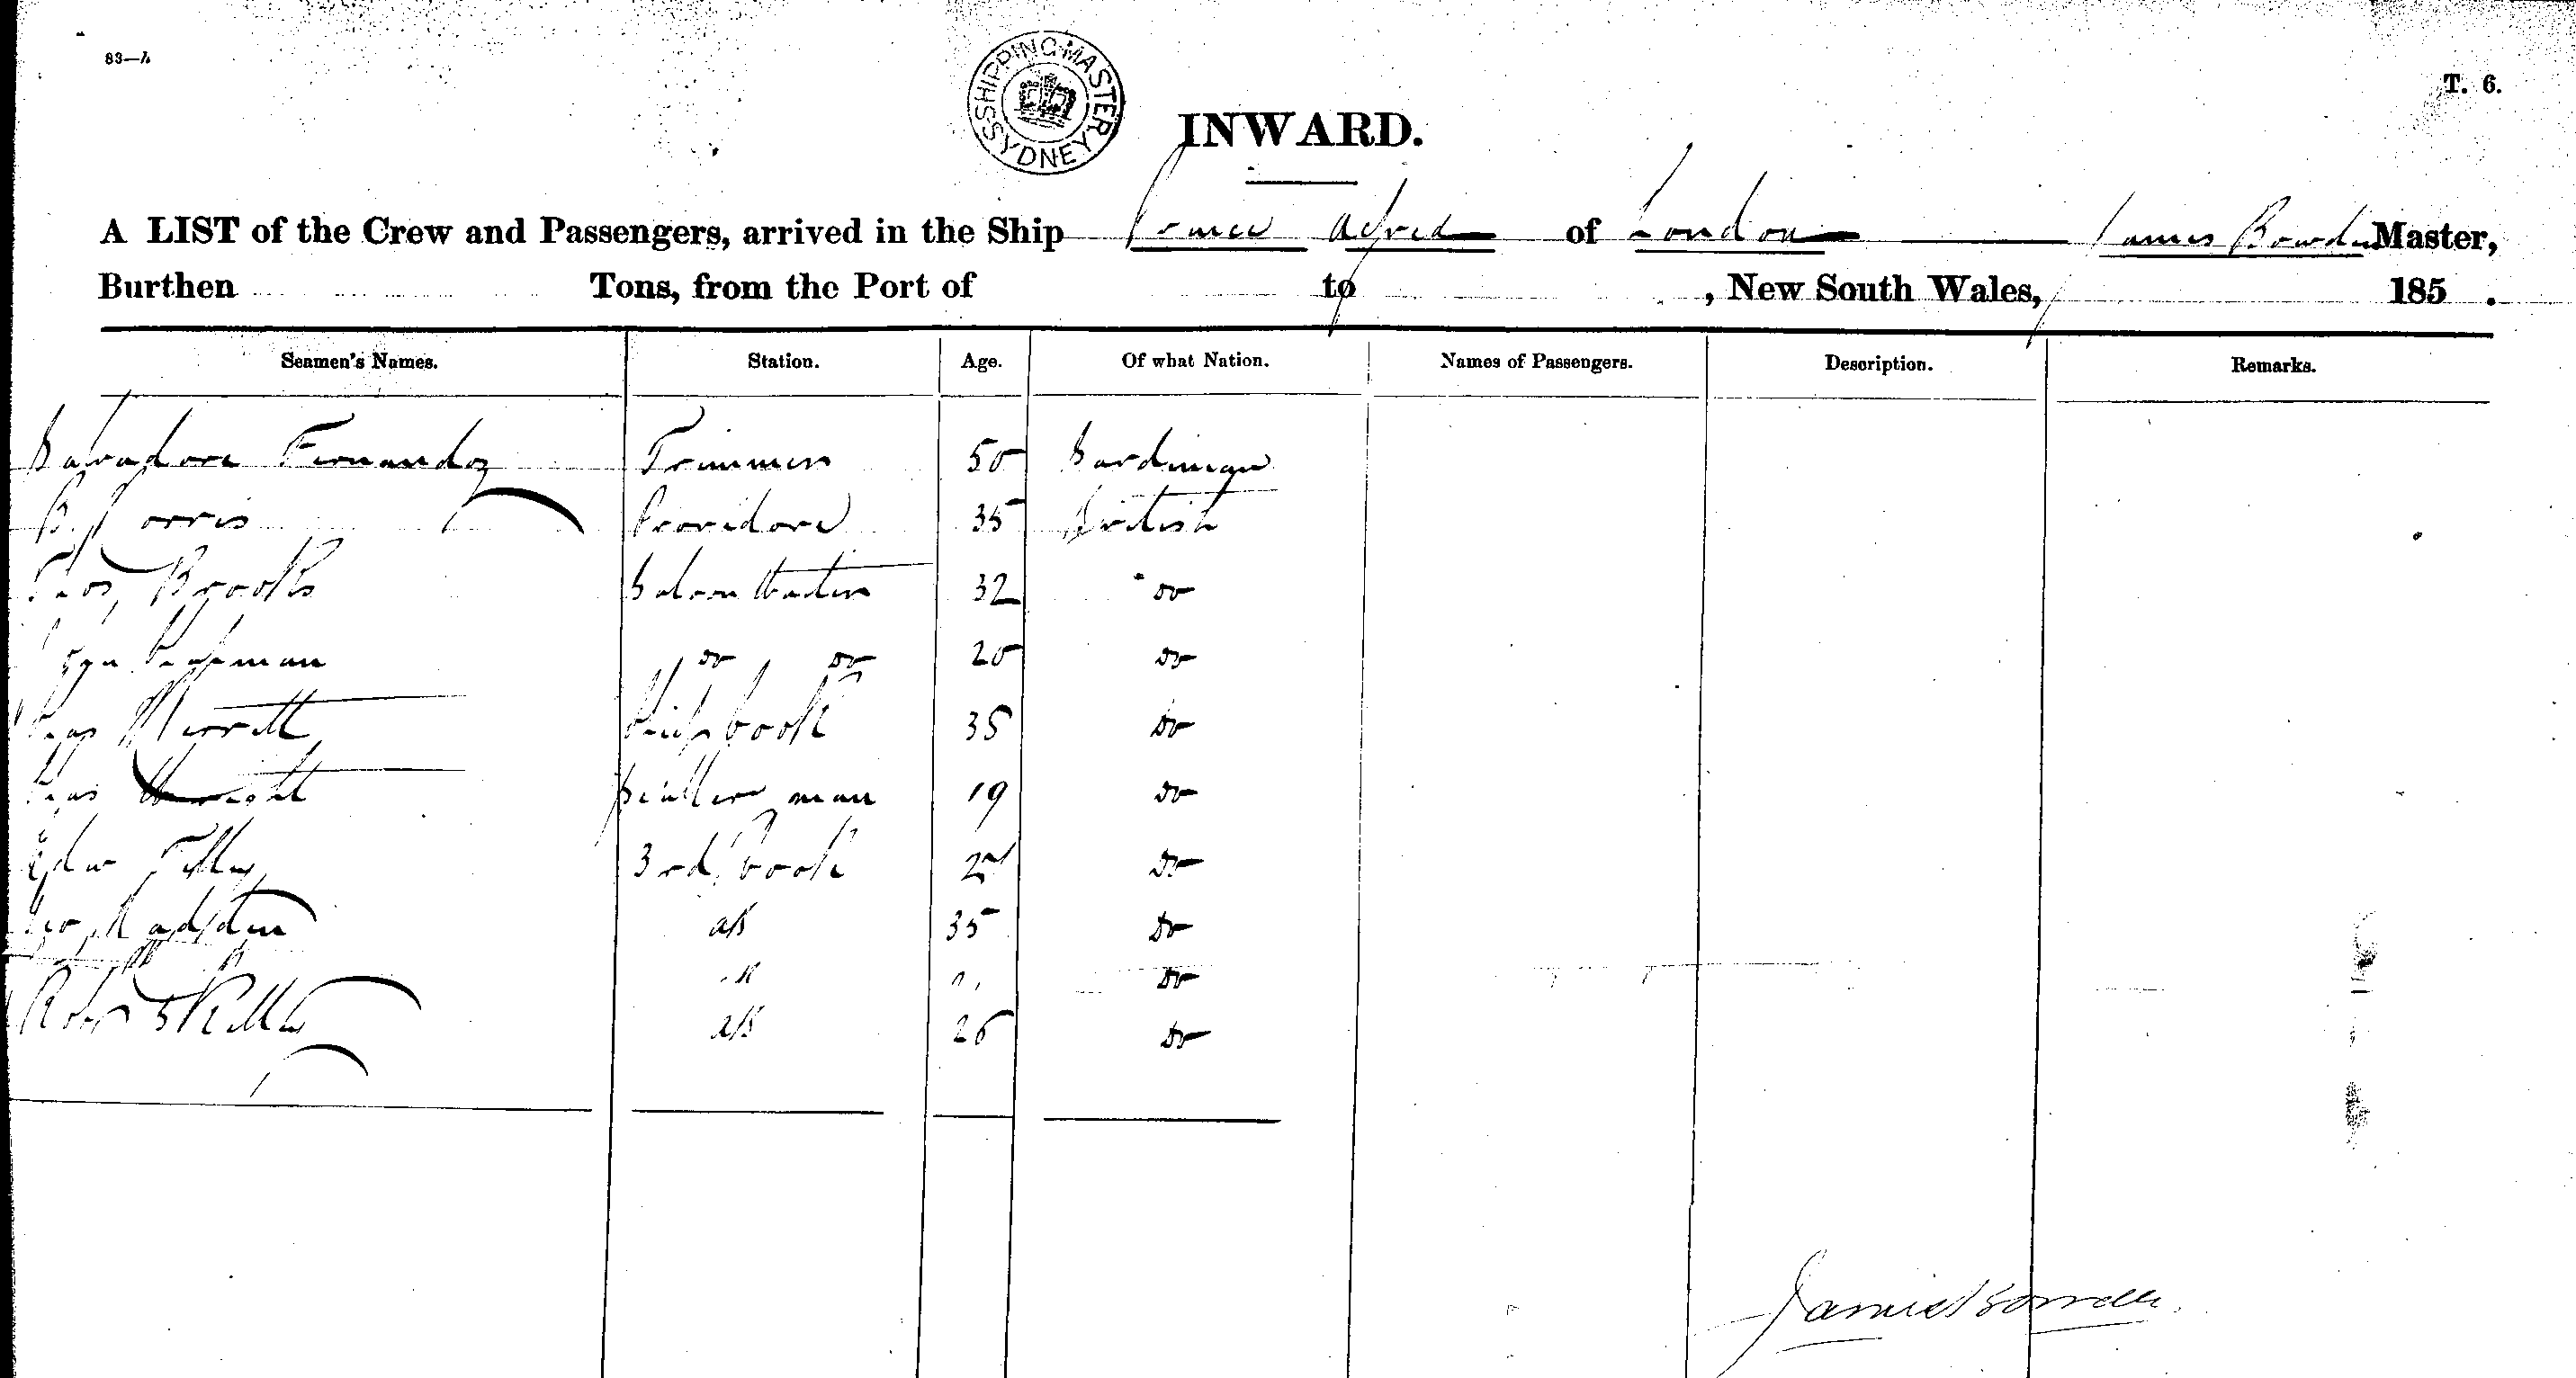 83—A
T. 6.
SHIPPING MASTER SYDNEY
INWARD.
A LIST of the Crew and Passengers, arrived in the Ship Prince Alfred of London James Bowden Master,
Burthen Tons, from the Port of to , New South Wales, 185 .
Seamen's Names. Station. Age. Of what Nation. Names of Passengers. Description. Remarks.
Salvadore Fernandez Trimmer 50 Sardinian
B. Providore 35 British
Thos Brooks Saloon Waiter 32 Do
Do Do 20 Do
Chas Merritt Chief Cook 35 Do
Chas Wright Scullery man 19 Do
Edwd 3rd Cook Do
Geo AB 35 Do
Do
Robt AB 26 Do
James Bowden